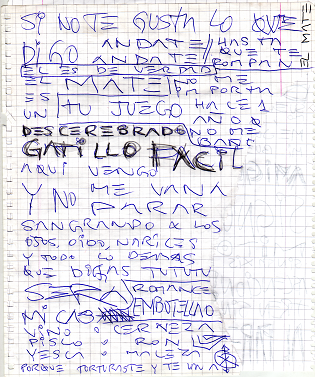 SI NO TE GUSTA LO QUE
DIGO ANDATE // HASTA
ANDATE // QUE TE
ROMPAN EL MATE
ÉL ES DE VERDAD
EL MATE NO ME
ES IMPORTA
UN TU JUEGO HACE 1
AÑO
DESCEREBRADO NO ME
GATILLO FACIL
AQUI VENGO
Y NO ME VAN A
PARAR
SANGRANDO X LOS
OJOS, OIDO, NARICES
Y TODO LO DEMAS
QUE DIGAS TUTUTU
ROMANCE
MI CASO EMBOTELLAO
VINO O CERVEZA
PISCO O RON
YESCA O MALEZA
PORQUE TORTURASTE Y TE VAN A